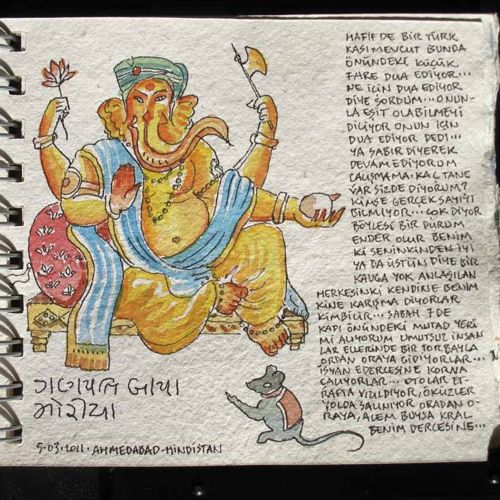 HAFİF DE BİR TÜRK
KASI MEVCUT BUNDA
ÖNÜNDEKİ KÜÇÜK
FARE DUA EDİYOR...
NE İÇİN DUA EDİYOR
DİYE SORDUM... ONUN-
LA EŞİT OLABİLMEYİ
DİLİYOR ONUN İÇİN
DUA EDİYOR DEDİ...
YA SABIR DİYEREK
DEVAM EDİYORUM
ÇALIŞMAMA. KAÇ TANE
VAR SİZDE DİYORUM?
KİMSE GERÇEK SAYIYI
BİLMİYOR... ÇOK DİYOR
BÖYLESİ BİR DURUM
ENDER OLUR BENİM
Kİ SENİNKİNDEN İYİ
YA DA ÜSTÜN DİYE BİR
KAVGA YOK ANLAŞILAN
HERKESİNKİ KENDİNE BENİM
KİNE KARIŞMA DİYORLAR
KİMBİLİR... SABAH 7 DE
KAPI ÖNÜNDEKİ MUTAD YERİ
Mİ ALIYORUM UMUTSUZ İNSAN
LAR ELLERİNDE BİR TORBAYLA
ORDAN ORAYA GİDİYORLAR...
İSYAN EDERCESİNE KORNA
ÇALIYORLAR... OTOLAR ET-
RAFTA VIZILDIYOR, ÖKÜZLER
YOLDA SALINIYOR ORADAN O-
RAYA, ALEM BUYSA KRAL
BENİM DERCESİNE...
ગણપતિ બાપા
મોરીયા
5-03.2011. AHMEDABAD-HİNDİSTAN